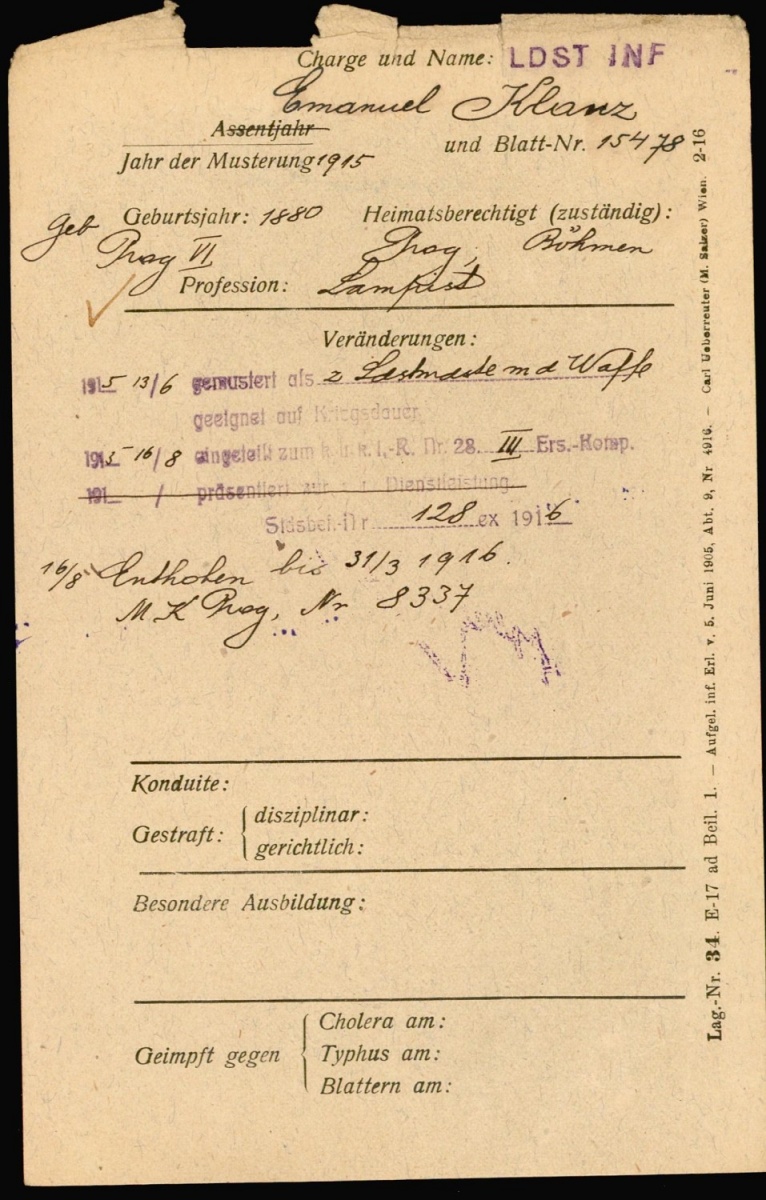 Charge und Name: LDST INF
Emanuel Klanz
Assentjahr
Jahr der Musterung 1915 und Blatt-Nr. 15478
geb Geburtsjahr: 1880 Heimatsberechtigt (zuständig):
Prag VI Prag, Böhmen
Profession: Lampist
Veränderungen:
1915 13/6 gemustert als z m d Waffe
geeignet auf Kriegsdauer
1915 16/8 eingeteilt zum k. u. k. I.-R. Nr. 28. III Ers.-Komp.
191 / präsentiert zur Dienstleistung
Nr 128 ex 1916
16/8 Enthoben bis 31/3 1916.
M K Prag, Nr 8337
Konduite:
Gestraft: disziplinar:
gerichtlich:
Besondere Ausbildung:
Geimpft gegen
Cholera am:
Typhus am:
Blattern am:
Lag.-Nr. 34. E-17 ad Beil. 1. — Aufgel. inf. Erl. v. 5. Juni 1905, Abt. 9, Nr 4916. — Carl Ueberreuter (M. Salzer) Wien. 2-16